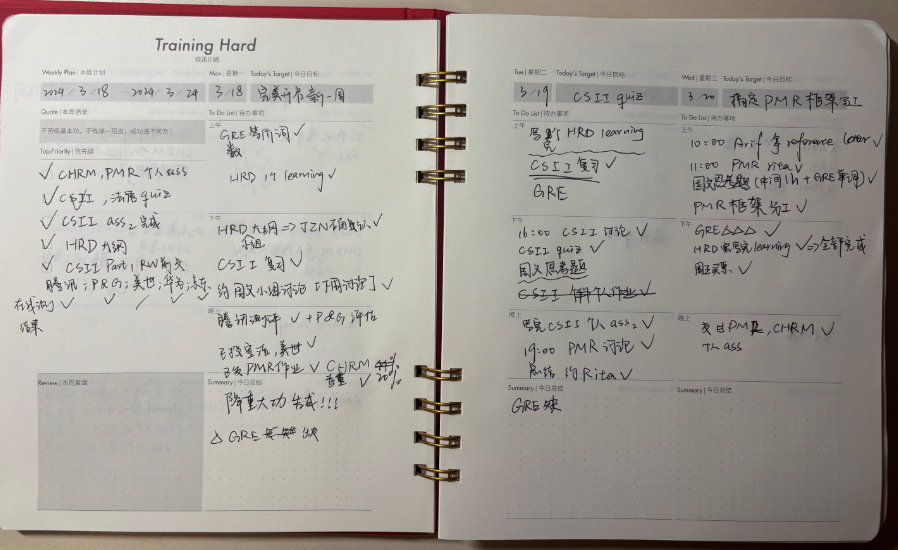 Training Hard
Weekly Plan | 本周计划
2024/3/18 - 2024/3/24
Quote | 本周语录
Top Priority | 优先级
✓ CHRM, PMR 个人 ass
✓ CSII, 法语 quiz
✓ CSII ass2 完成
✓ HRD 大纲
✓ CSII Part1, RW
腾讯; P&G; 美世; 华为;
在线测 ✓ ✓ / ✓ ✓
结果
Review | 本周复盘
Mon | 星期一 Today's Target | 今日目标
3/18 完美开启新一周
To Do List | 待办事项
上午
GRE 单词 ✓
数
HRD 19 learning ✓
下午
HRD 大纲 => JZN 确认 ✓
小组
CSII 复习 ✓
约国文小组讨论 [下周讨论]
晚上
腾讯测评 ✓ + P&G 评估
已投 美世 ✓
PMR 作业 ✓ CHRM
查重 ✓ 20%
Summary | 今日总结
降重大功告成!!!
△ GRE 缺
Tue | 星期二 Today's Target | 今日目标
3/19 CSII quiz
To Do List | 待办事项
上午
写 HRD learning
完
CSII 复习 ✓
GRE
下午
16:00 CSII 讨论 ✓
CSII quiz ✓
国文思考题
CSII 个人作业 ✓
晚上
写完 CSII 个人 ass2 ✓
19:00 PMR 讨论 ✓
约 Rita ✓
Summary | 今日总结
GRE 缺
Wed | 星期三 Today's Target | 今日目标
3/20 搞定 PMR 框架分工
To Do List | 待办事项
上午
10:00 Arif reference letter ✓
11:00 PMR rita ✓
国文思考题 (中间 1h + GRE 单词) ✓
PMR 框架分工 ✓
下午
GRE △△△ ✓
HRD 写完 learning ✓ => 全部完成
买票 ✓
晚上
交 PMR, CHRM ✓
个人 ass
Summary | 今日总结